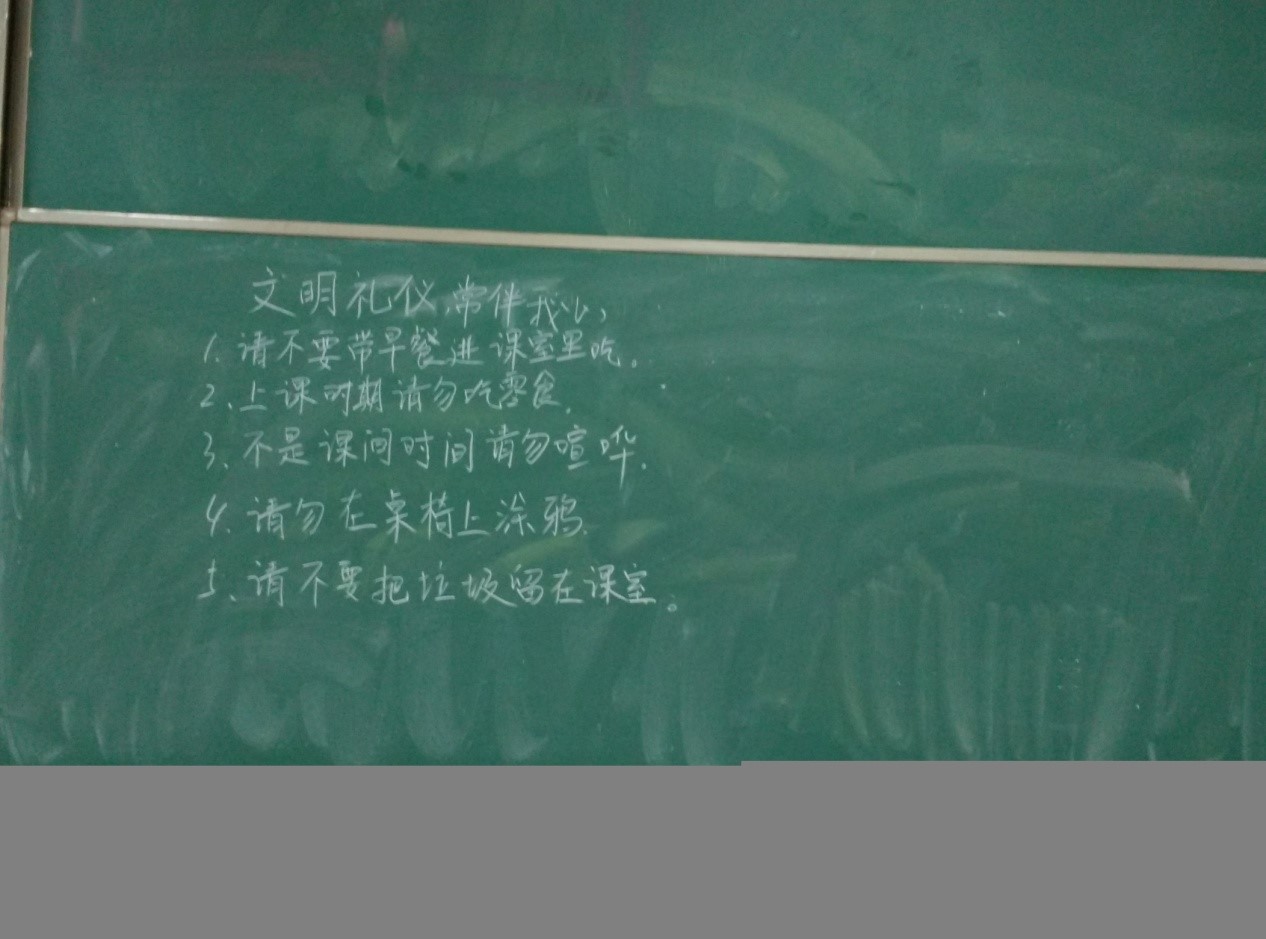 文明礼仪,常伴我心,
1.请不要带早餐进课室里吃。
2、上课时期请勿吃零食.
3、不是课间时间请勿喧哗.
4.请勿在桌椅上涂鸦.
5、请不要把垃圾留在课室。